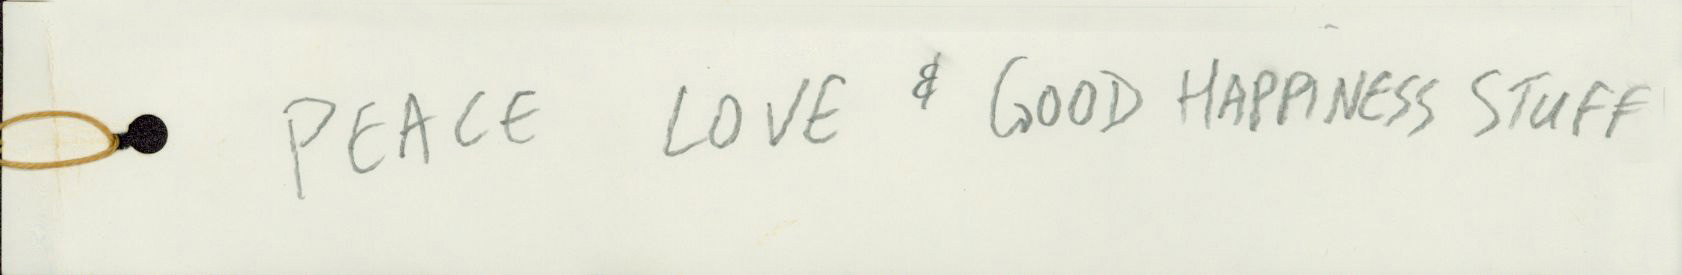 PEACE LOVE & GOOD HAPPINESS STUFF